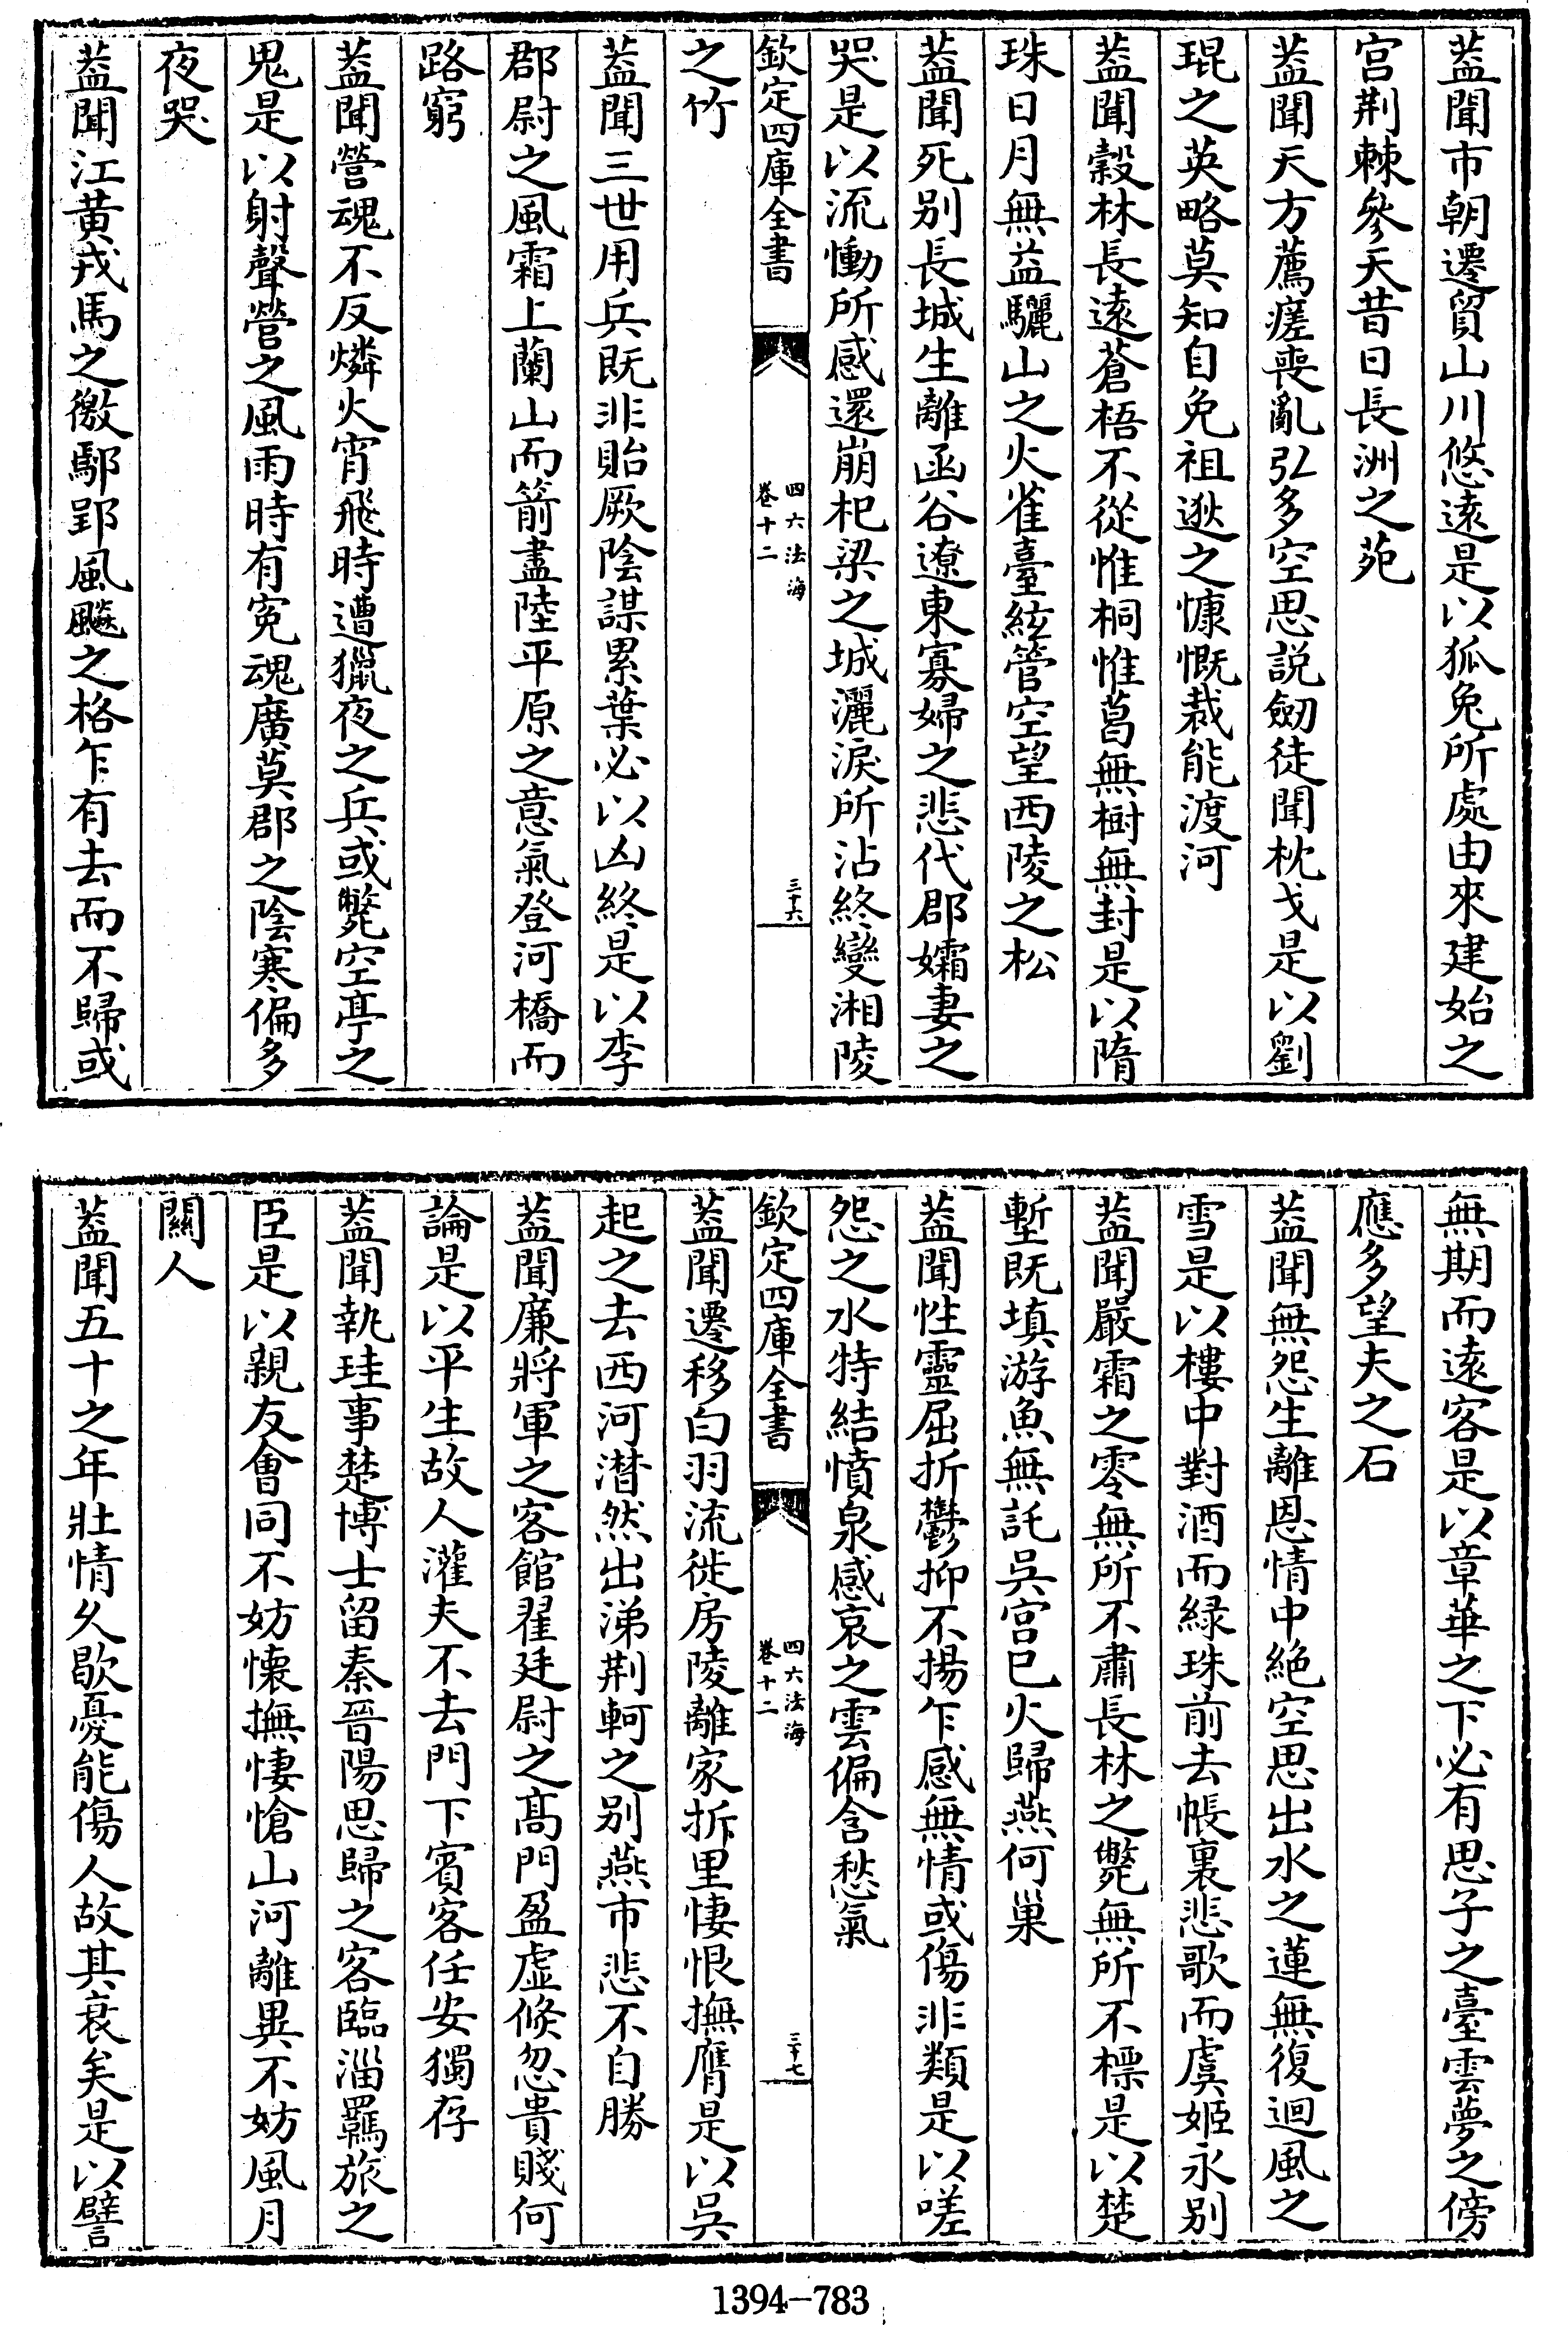 葢聞市朝遷貿山川悠遠是以狐兔所處由來建始之
宫荆棘參天昔日長洲之苑
葢聞天方薦瘥喪亂弘多空思説劒徒聞枕戈是以劉
琨之英略莫知自免祖逖之慷慨裁能渡河
葢聞穀林長遠蒼梧不從惟桐惟葛無樹無封是以隋
珠日月無益驪山之火雀臺絃管空望西陵之松
葢聞死别長城生離函谷遼東寡婦之悲代郡孀妻之
哭是以流慟所感還崩杞梁之城灑淚所沾終變湘陵
欽定四庫全書
四六法海
卷十二
三十六
之竹
葢聞三世用兵既非貽厥陰謀累葉必以凶終是以李
郡尉之風霜上蘭山而箭盡陸平原之意氣登河橋而
路窮
葢聞營魂不反燐火宵飛時遭獵夜之兵或斃空亭之
鬼是以射聲營之風雨時有寃魂廣莫郡之陰寒偏多
夜哭
葢聞江黄戎馬之徼鄢郢風飈之格乍有去而不歸或
無期而遠客是以章華之下必有思子之臺雲夢之傍
應多望夫之石
葢聞無怨生離恩情中絶空思出水之蓮無復迴風之
雪是以樓中對酒而緑珠前去帳裏悲歌而虞姬永别
葢聞嚴霜之零無所不肅長林之斃無所不摽是以楚
塹既填游魚無託吳宫已火歸燕何巢
葢聞性靈屈折鬱抑不揚乍感無情或傷非類是以嗟
怨之水特結憤泉感哀之雲偏含愁氣
欽定四庫全書
四六法海
卷十二
三十七
葢聞遷移白羽流徙房陵離家拆里悽恨撫膺是以吳
起之去西河潸然出涕荆軻之别燕市悲不自勝
葢聞廉將軍之客館翟廷尉之髙門盈虚倐忽貴賤何
論是以平生故人灌夫不去門下賓客任安獨存
葢聞執珪事楚博士留秦晉陽思歸之客臨淄羈旅之
臣是以親友會同不妨懐撫悽愴山河離異不妨風月
關人
葢聞五十之年壯情久歇憂能傷人故其衰矣是以譬
1394-783